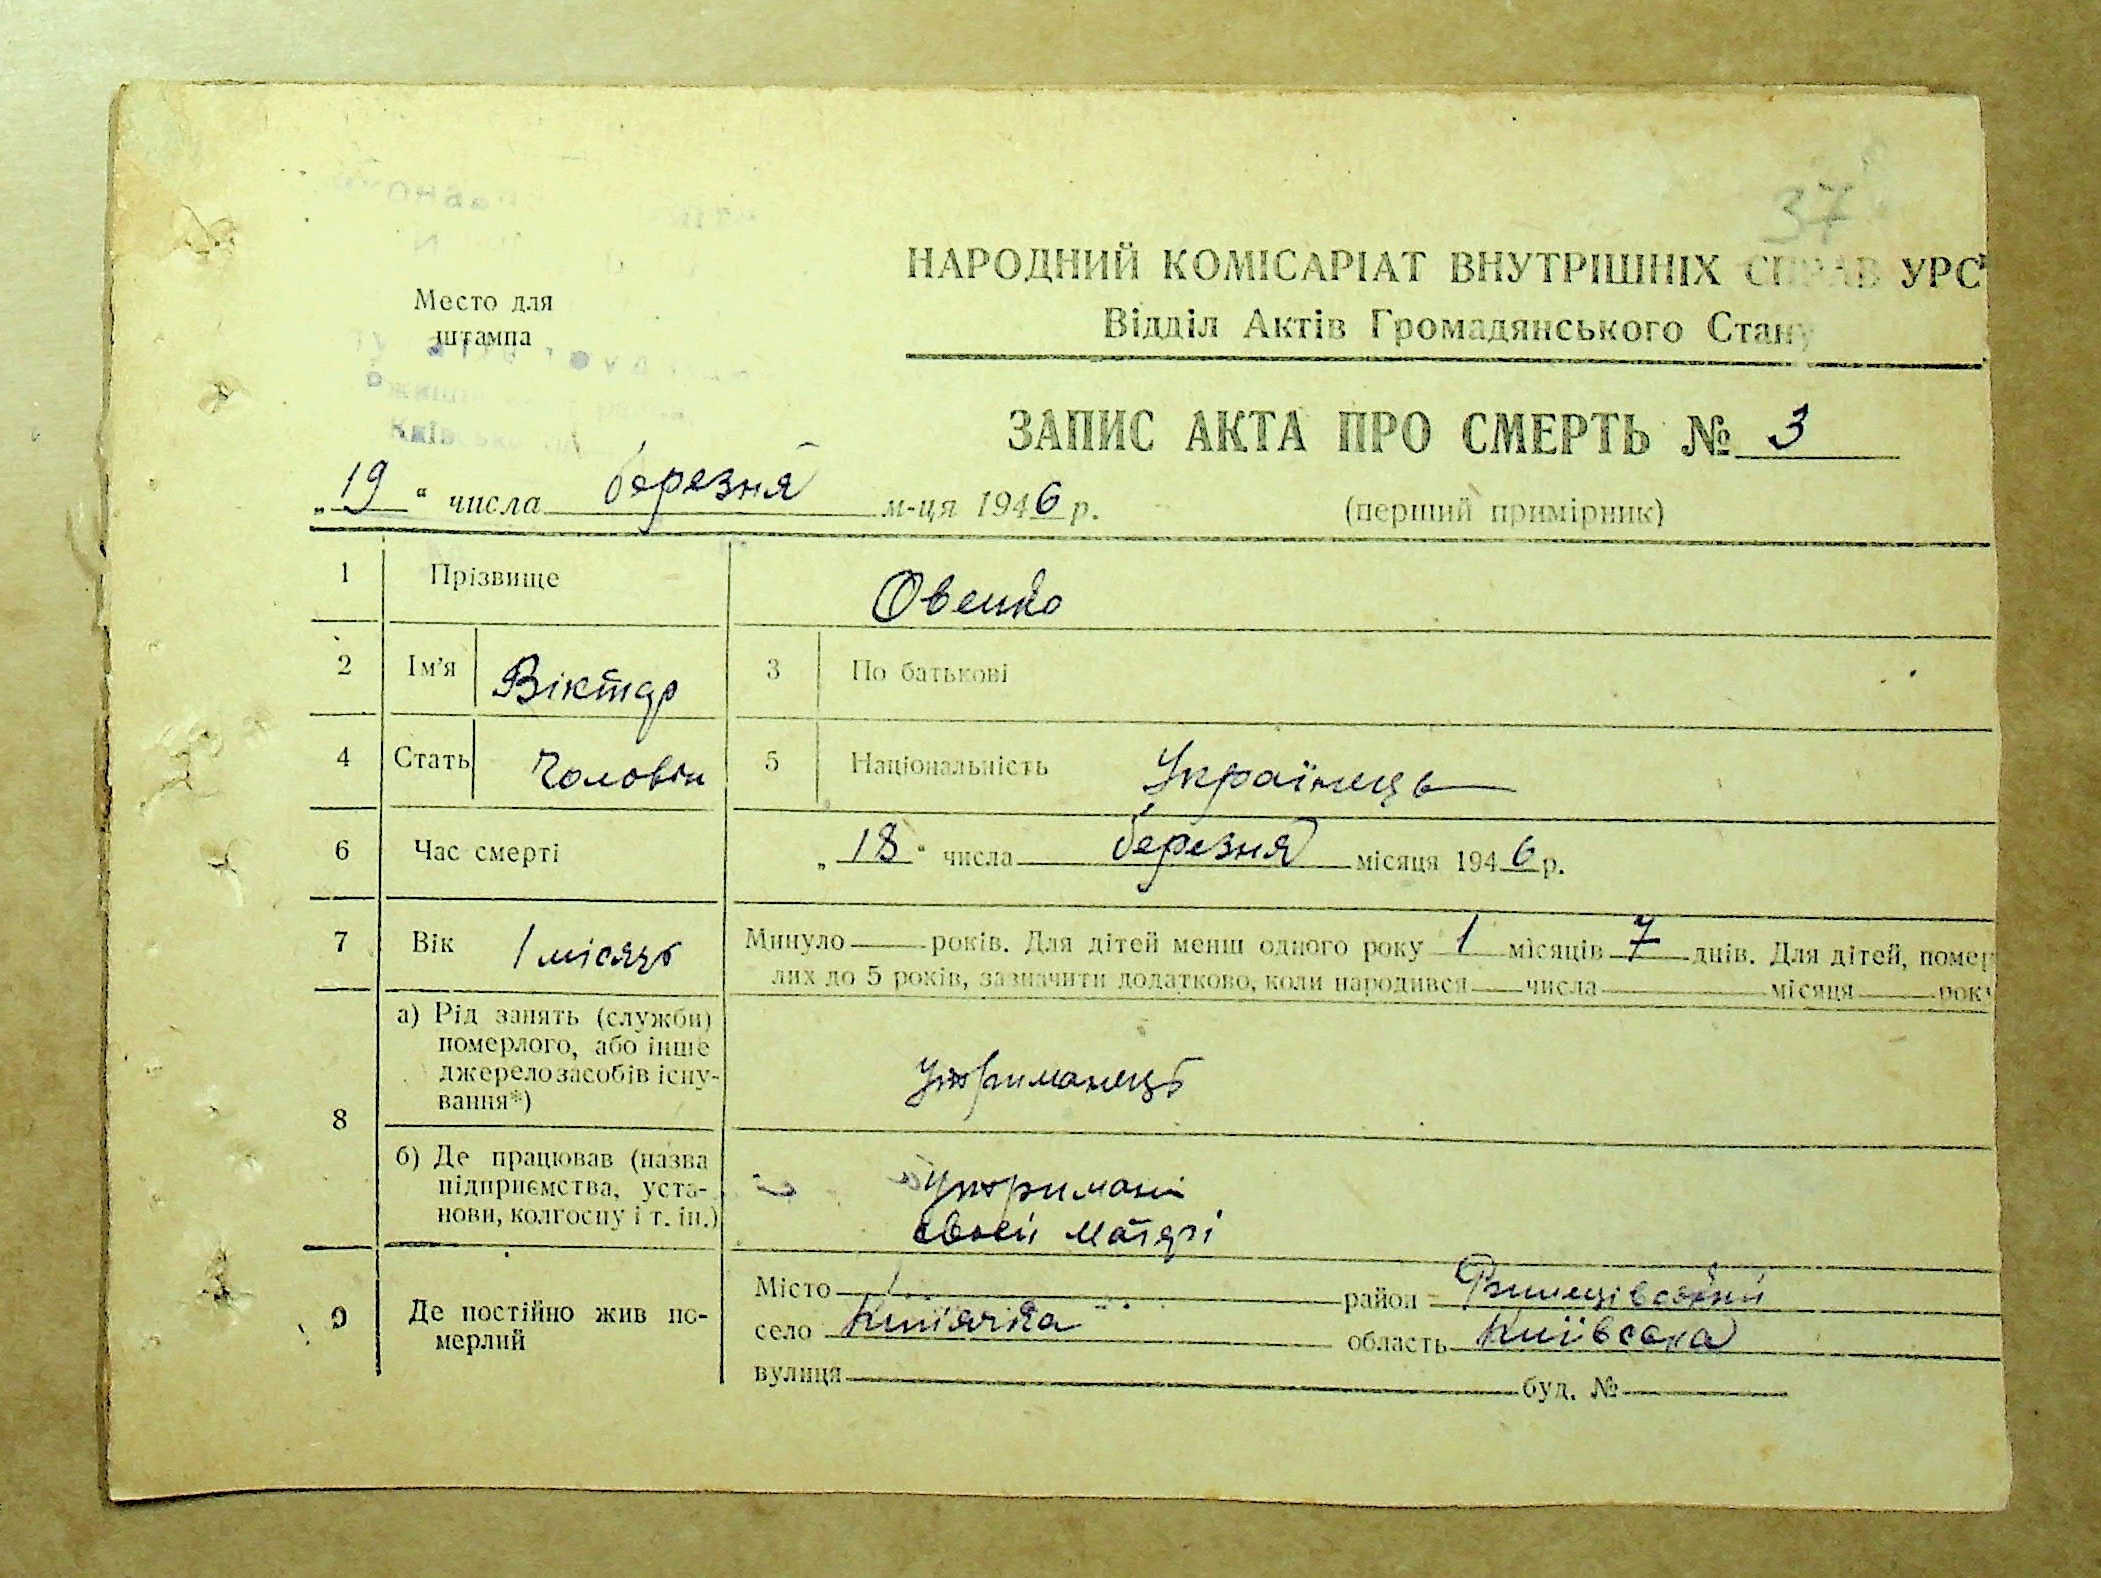 37
НАРОДНИЙ КОМІСАРІАТ ВНУТРІШНІХ СПРАВ УРС
Відділ Актів Громадянського Стану
Место для
штампа
ЗАПИС АКТА ПРО СМЕРТЬ № 3
„19“ числа березня м-ця 1946 р.
(перший примірник)
1 Прізвище Овенко
2 Ім'я Віктор 3 По батькові
4 Стать Чоловік 5 Національність Українець
6 Час смерті „18“ числа березня місяця 1946 р.
7 Вік 1 місяць Минуло років. Для дітей менш одного року 1 місяців 7 днів. Для дітей, помер
лих до 5 років, зазначити додатково, коли народився числа місяця року
8 а) Рід занять (служби)
померлого, або інше
джерело засобів існу-
вання*)
утриманець
б) Де працював (назва
підприємства, уста-
нови, колгоспу і т. ін.)
утримані
своєй матері
9 Де постійно жив по-
мерлий
Місто район
село область Київська
вулиця буд. №